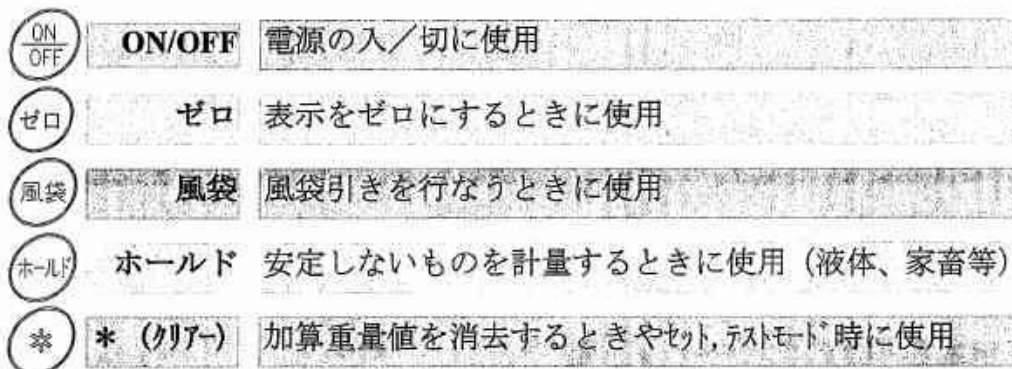 ON
OFF ON/OFF 電源の入／切に使用
ゼロ ゼロ 表示をゼロにするときに使用
風袋 風袋 風袋引きを行なうときに使用
ホールド ホールド 安定しないものを計量するときに使用（液体、家畜等）
＊ ＊（ｸﾘｱｰ） 加算重量値を消去するときやｾｯﾄ,ﾃｽﾄﾓｰﾄﾞ時に使用